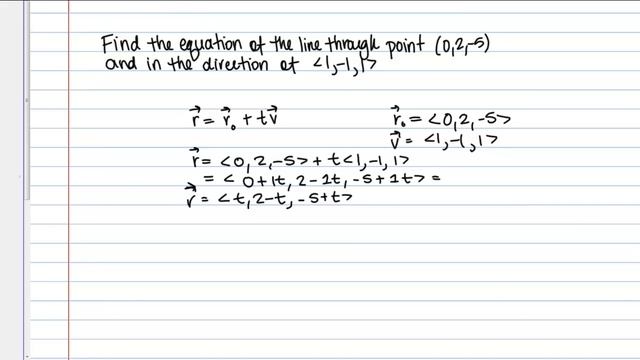 Find the equation of the line through point (0,2,-5)
and in the direction of <1,-1,1>
r⃗ = r⃗₀ + tv⃗
r⃗₀ = <0,2,-5>
v⃗ = <1,-1,1>
r⃗ = <0,2,-5> + t<1,-1,1>
= < 0+1t, 2-1t, -5+1t> =
r⃗ = <t, 2-t, -5+t>